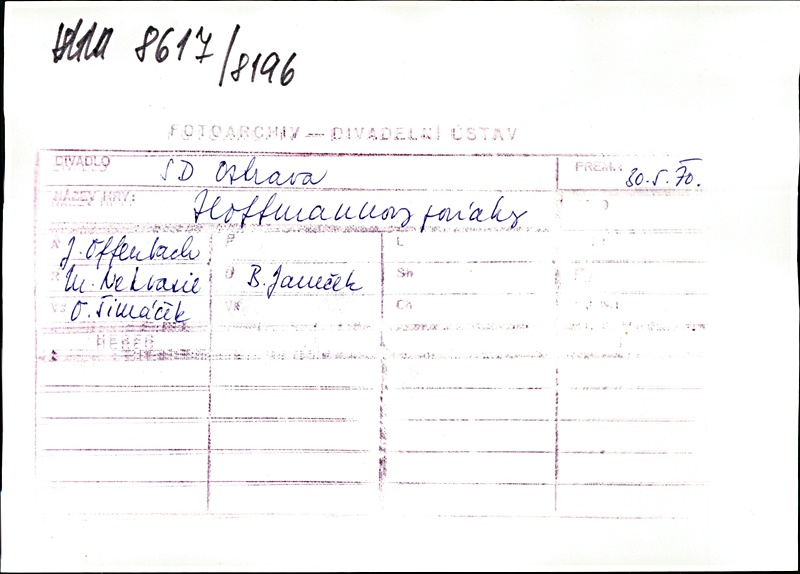 8617/8196
FOTOARCHIV — DIVADELNÍ ÚSTAV
DIVADLO SD Ostrava PREM.: 30.5.70.
NÁZEV HRY: Hoffmannovy povídky
J. Offenbach P L
M. Nekvasil D B. Janeček Sn
O. Šimáček Vs Ch